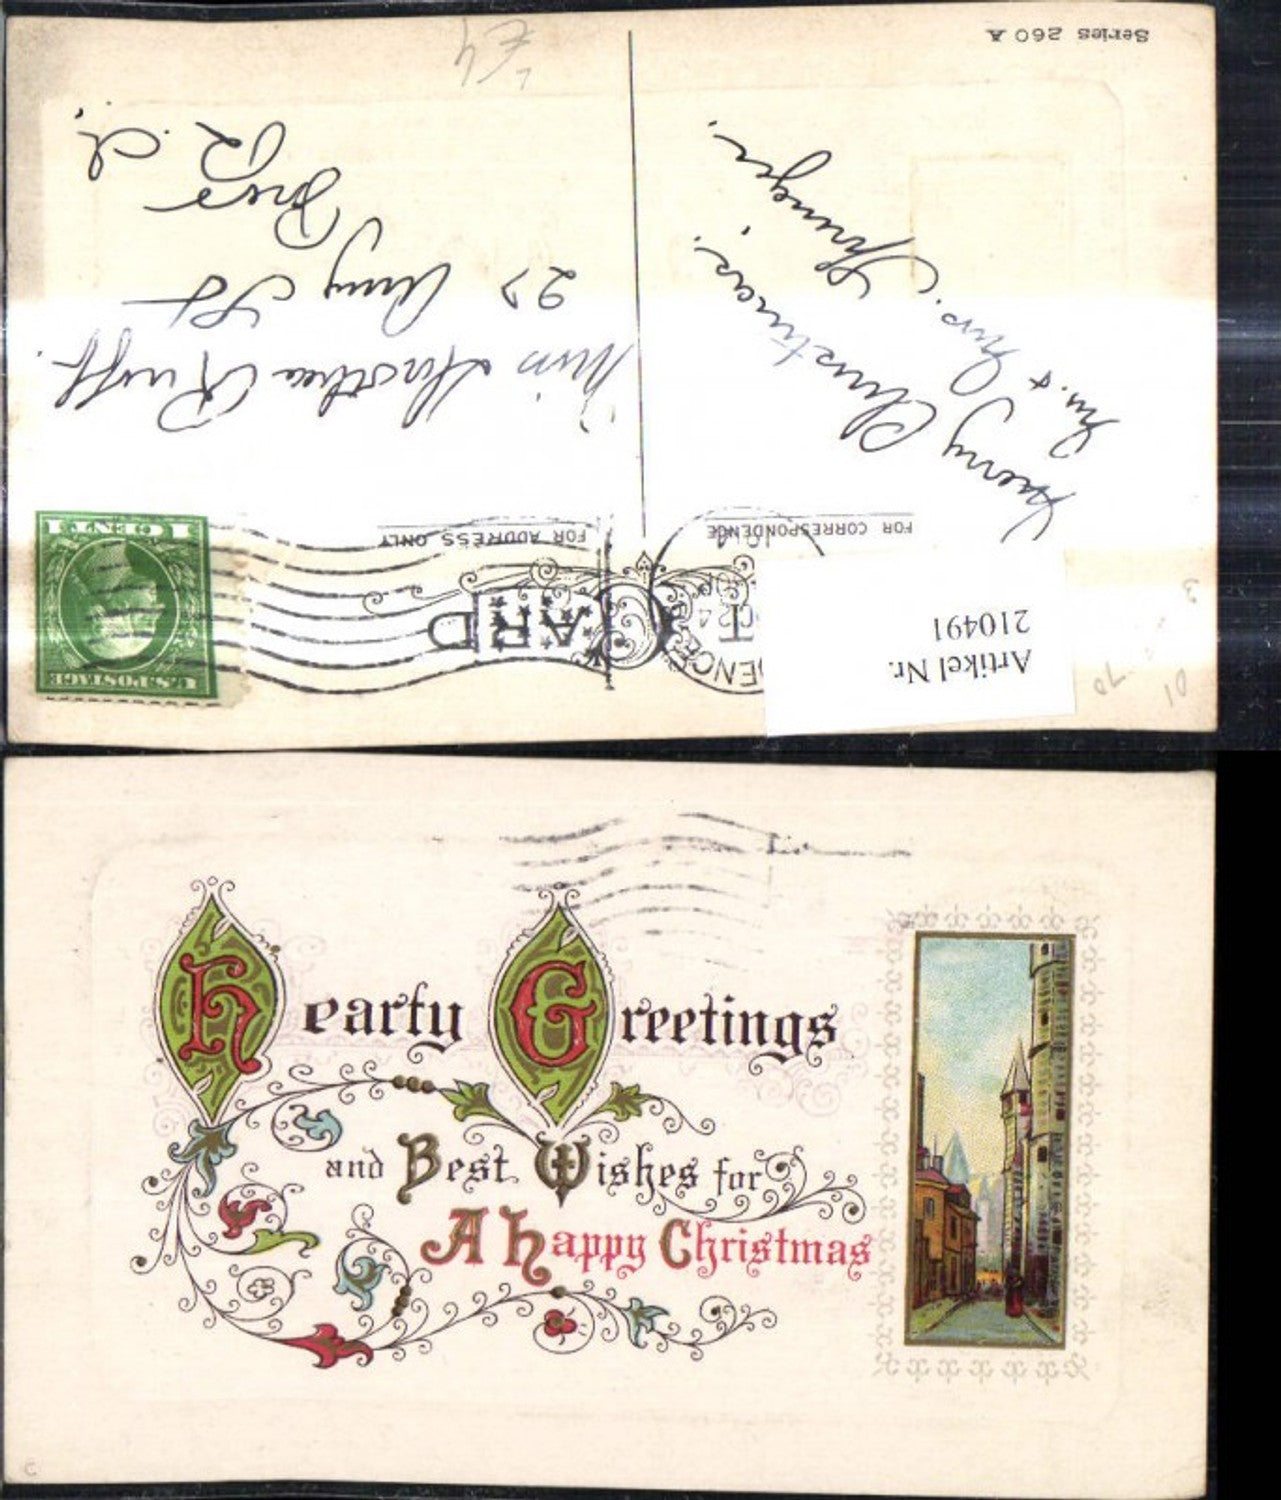 Artikel Nr.
210491
U.S.POSTAGE
1 CENT 1
CARD
FOR CORRESPONDENCE
FOR ADDRESS ONLY
Merry Christmas.
Mr. & Mrs.
Miss Dorothea Ruff.
27 Amy St
Prov
R. I.
Series 260 A
Hearty Greetings
and Best Wishes for
A happy Christmas